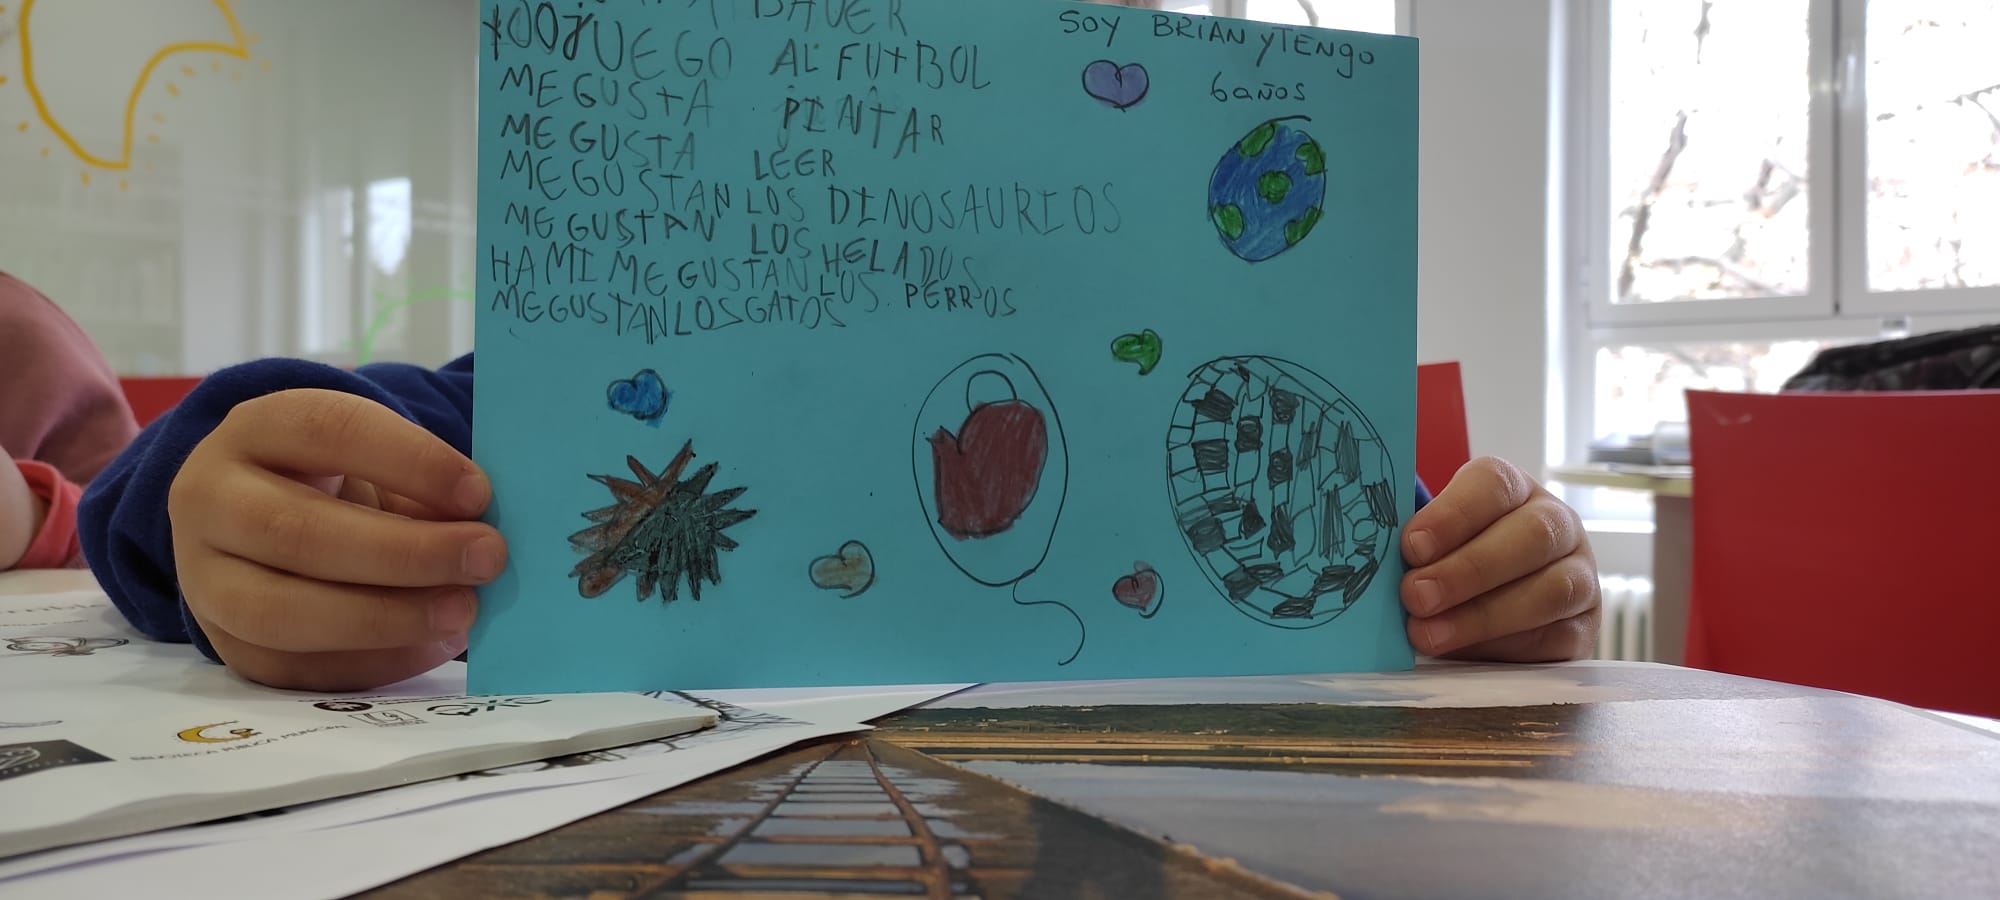 YOOJUEGO AL FUTBOL
ME GUSTA PINTAR
ME GUSTA LEER
ME GUSTAN LOS DINOSAURIOS
ME GUSTAN LOS HELADOS
HAMI ME GUSTAN LOS. PERROS
MEGUSTANLOSGATOS
SOY BRIAN Y TENgo
6 años
BIBLIOTECA PÚBLICA MUNICIPAL